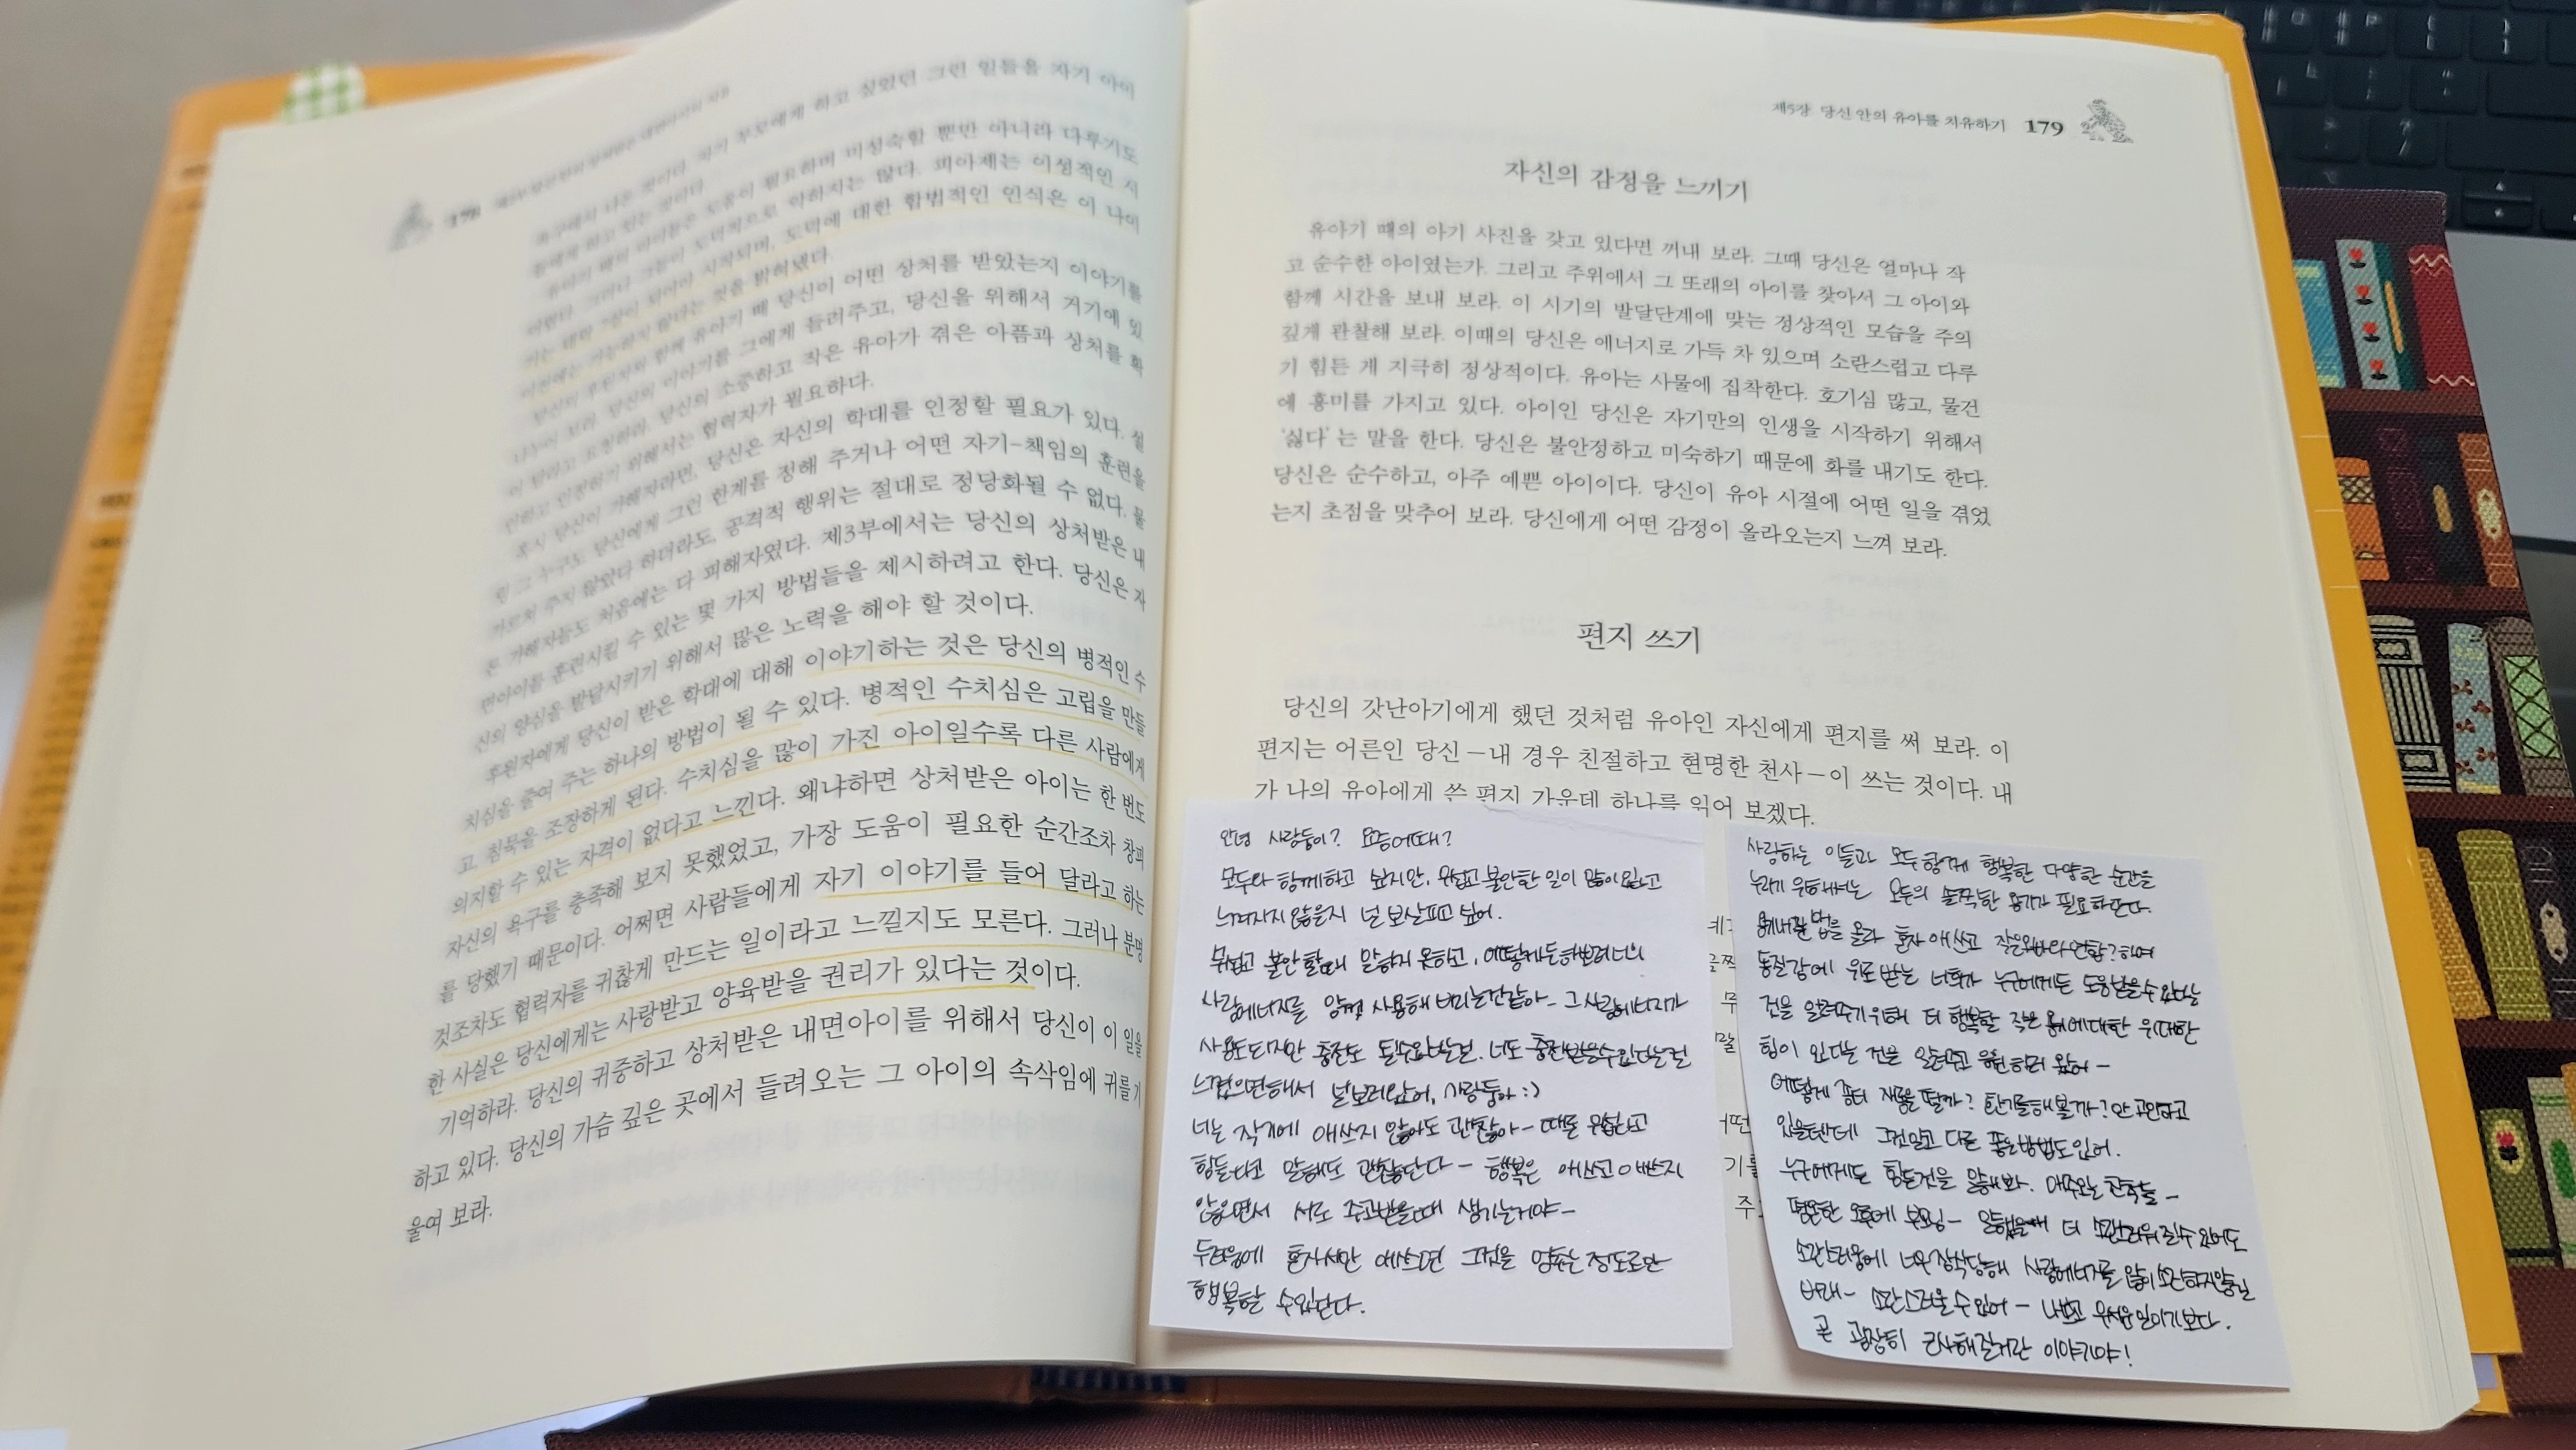 하고 싶었던 그런 일들을 자기 아이
필요하며 미성숙할 뿐만 아니라 다루기도
많다. 피아제는 이성적인 시
시작되며, 도덕에 대한 합법적인 인식은 이 나이
것을 밝혀냈다.
유아기 때 당신이 어떤 상처를 받았는지 이야기를
그에게 들려주고, 당신을 위해서 거기에 있
당신의 소중하고 작은 유아가 겪은 아픔과 상처를 확
인하고 인정하기 위해서는 협력자가 필요하다.
혹시 당신이 가해자라면, 당신은 자신의 학대를 인정할 필요가 있다. 설
령 그 누구도 당신에게 그런 한계를 정해 주거나 어떤 자기-책임의 훈련을
가르쳐 주지 않았다 하더라도, 공격적 행위는 절대로 정당화될 수 없다. 물
론 가해자들도 처음에는 다 피해자였다. 제3부에서는 당신의 상처받은 내
면아이를 훈련시킬 수 있는 몇 가지 방법들을 제시하려고 한다. 당신은 자
신의 양심을 발달시키기 위해서 많은 노력을 해야 할 것이다.
후원자에게 당신이 받은 학대에 대해 이야기하는 것은 당신의 병적인 수
치심을 줄여 주는 하나의 방법이 될 수 있다. 병적인 수치심은 고립을 만들
고, 침묵을 조장하게 된다. 수치심을 많이 가진 아이일수록 다른 사람에게
의지할 수 있는 자격이 없다고 느낀다. 왜냐하면 상처받은 아이는 한 번도
자신의 욕구를 충족해 보지 못했었고, 가장 도움이 필요한 순간조차 창피
를 당했기 때문이다. 어쩌면 사람들에게 자기 이야기를 들어 달라고 하는
것조차도 협력자를 귀찮게 만드는 일이라고 느낄지도 모른다. 그러나 분명
한 사실은 당신에게는 사랑받고 양육받을 권리가 있다는 것이다.
기억하라. 당신의 귀중하고 상처받은 내면아이를 위해서 당신이 이 일을
하고 있다. 당신의 가슴 깊은 곳에서 들려오는 그 아이의 속삭임에 귀를 기
울여 보라.
제5장 당신 안의 유아를 치유하기 179
자신의 감정을 느끼기
유아기 때의 아기 사진을 갖고 있다면 꺼내 보라. 그때 당신은 얼마나 작
고 순수한 아이였는가. 그리고 주위에서 그 또래의 아이를 찾아서 그 아이와
함께 시간을 보내 보라. 이 시기의 발달단계에 맞는 정상적인 모습을 주의
깊게 관찰해 보라. 이때의 당신은 에너지로 가득 차 있으며 소란스럽고 다루
기 힘든 게 지극히 정상적이다. 유아는 사물에 집착한다. 호기심 많고, 물건
에 흥미를 가지고 있다. 아이인 당신은 자기만의 인생을 시작하기 위해서
‘싫다’는 말을 한다. 당신은 불안정하고 미숙하기 때문에 화를 내기도 한다.
당신은 순수하고, 아주 예쁜 아이이다. 당신이 유아 시절에 어떤 일을 겪었
는지 초점을 맞추어 보라. 당신에게 어떤 감정이 올라오는지 느껴 보라.
편지 쓰기
당신의 갓난아기에게 했던 것처럼 유아인 자신에게 편지를 써 보라. 이
편지는 어른인 당신—내 경우 친절하고 현명한 천사—이 쓰는 것이다. 내
가 나의 유아에게 쓴 편지 가운데 하나를 읽어 보겠다.
안녕 사랑둥이? 요즘어때?
모두와 함께하고 싶지만, 무섭고 불안한 일이 많이있고
느껴지지 않을지 널 보살피고 싶어.
무섭고 불안할때 말하지 못하고, 어떻게든해보려 너의
사랑에너지를 양껏 사용해 버리는것같아- 그 사랑에너지가
사용도되지만 충전도 될수있다는걸. 너도 충전받을수있다는걸
느꼈으면해서 널보러왔어, 사랑둥아 :)
너는 작기에 애쓰지 않아도 괜찮아- 때론 무섭다고
힘들다고 말해도 괜찮단다- 행복은 애쓰고 애쓰지
않으면서 서로 주고받을때 생기는거야-
두려움에 혼자서만 애쓰면 그것을 멈추는 정도로만
행복할 수있단다.
사랑하는 이들과 모두함께 행복한 다양한 순간을
누리기 위해서는 모두의 솔직한 용기가 필요하단다.
용기내는 법을 몰라 혼자 애쓰고 작은 연합?하여
동질감에 위로 받는 너희가 누구에게든 도움받을수있다는
것을 알려주기위해 더 행복할 작은 용기에대한 위대한
힘이 있다는 것을 알려주고 응원하러 왔어-
어떻게 좀더 재롱을 떨까? 한기를해볼까? 만 고민하고
있을텐데 그것말고 다른 좋은방법도있어.
누구에게든 힘든것을 말해봐. 친척들-
평온한 오후에 부모님- 말했을때 더 소란스러워질수있어도
소란스러움에 너무 당해 사랑에너지를 많이 소진하지않길
바래- 소란스러울수있어- 나쁘고 무서운일이기보다.
곧 굉장히 근사해질거란 이야기야!